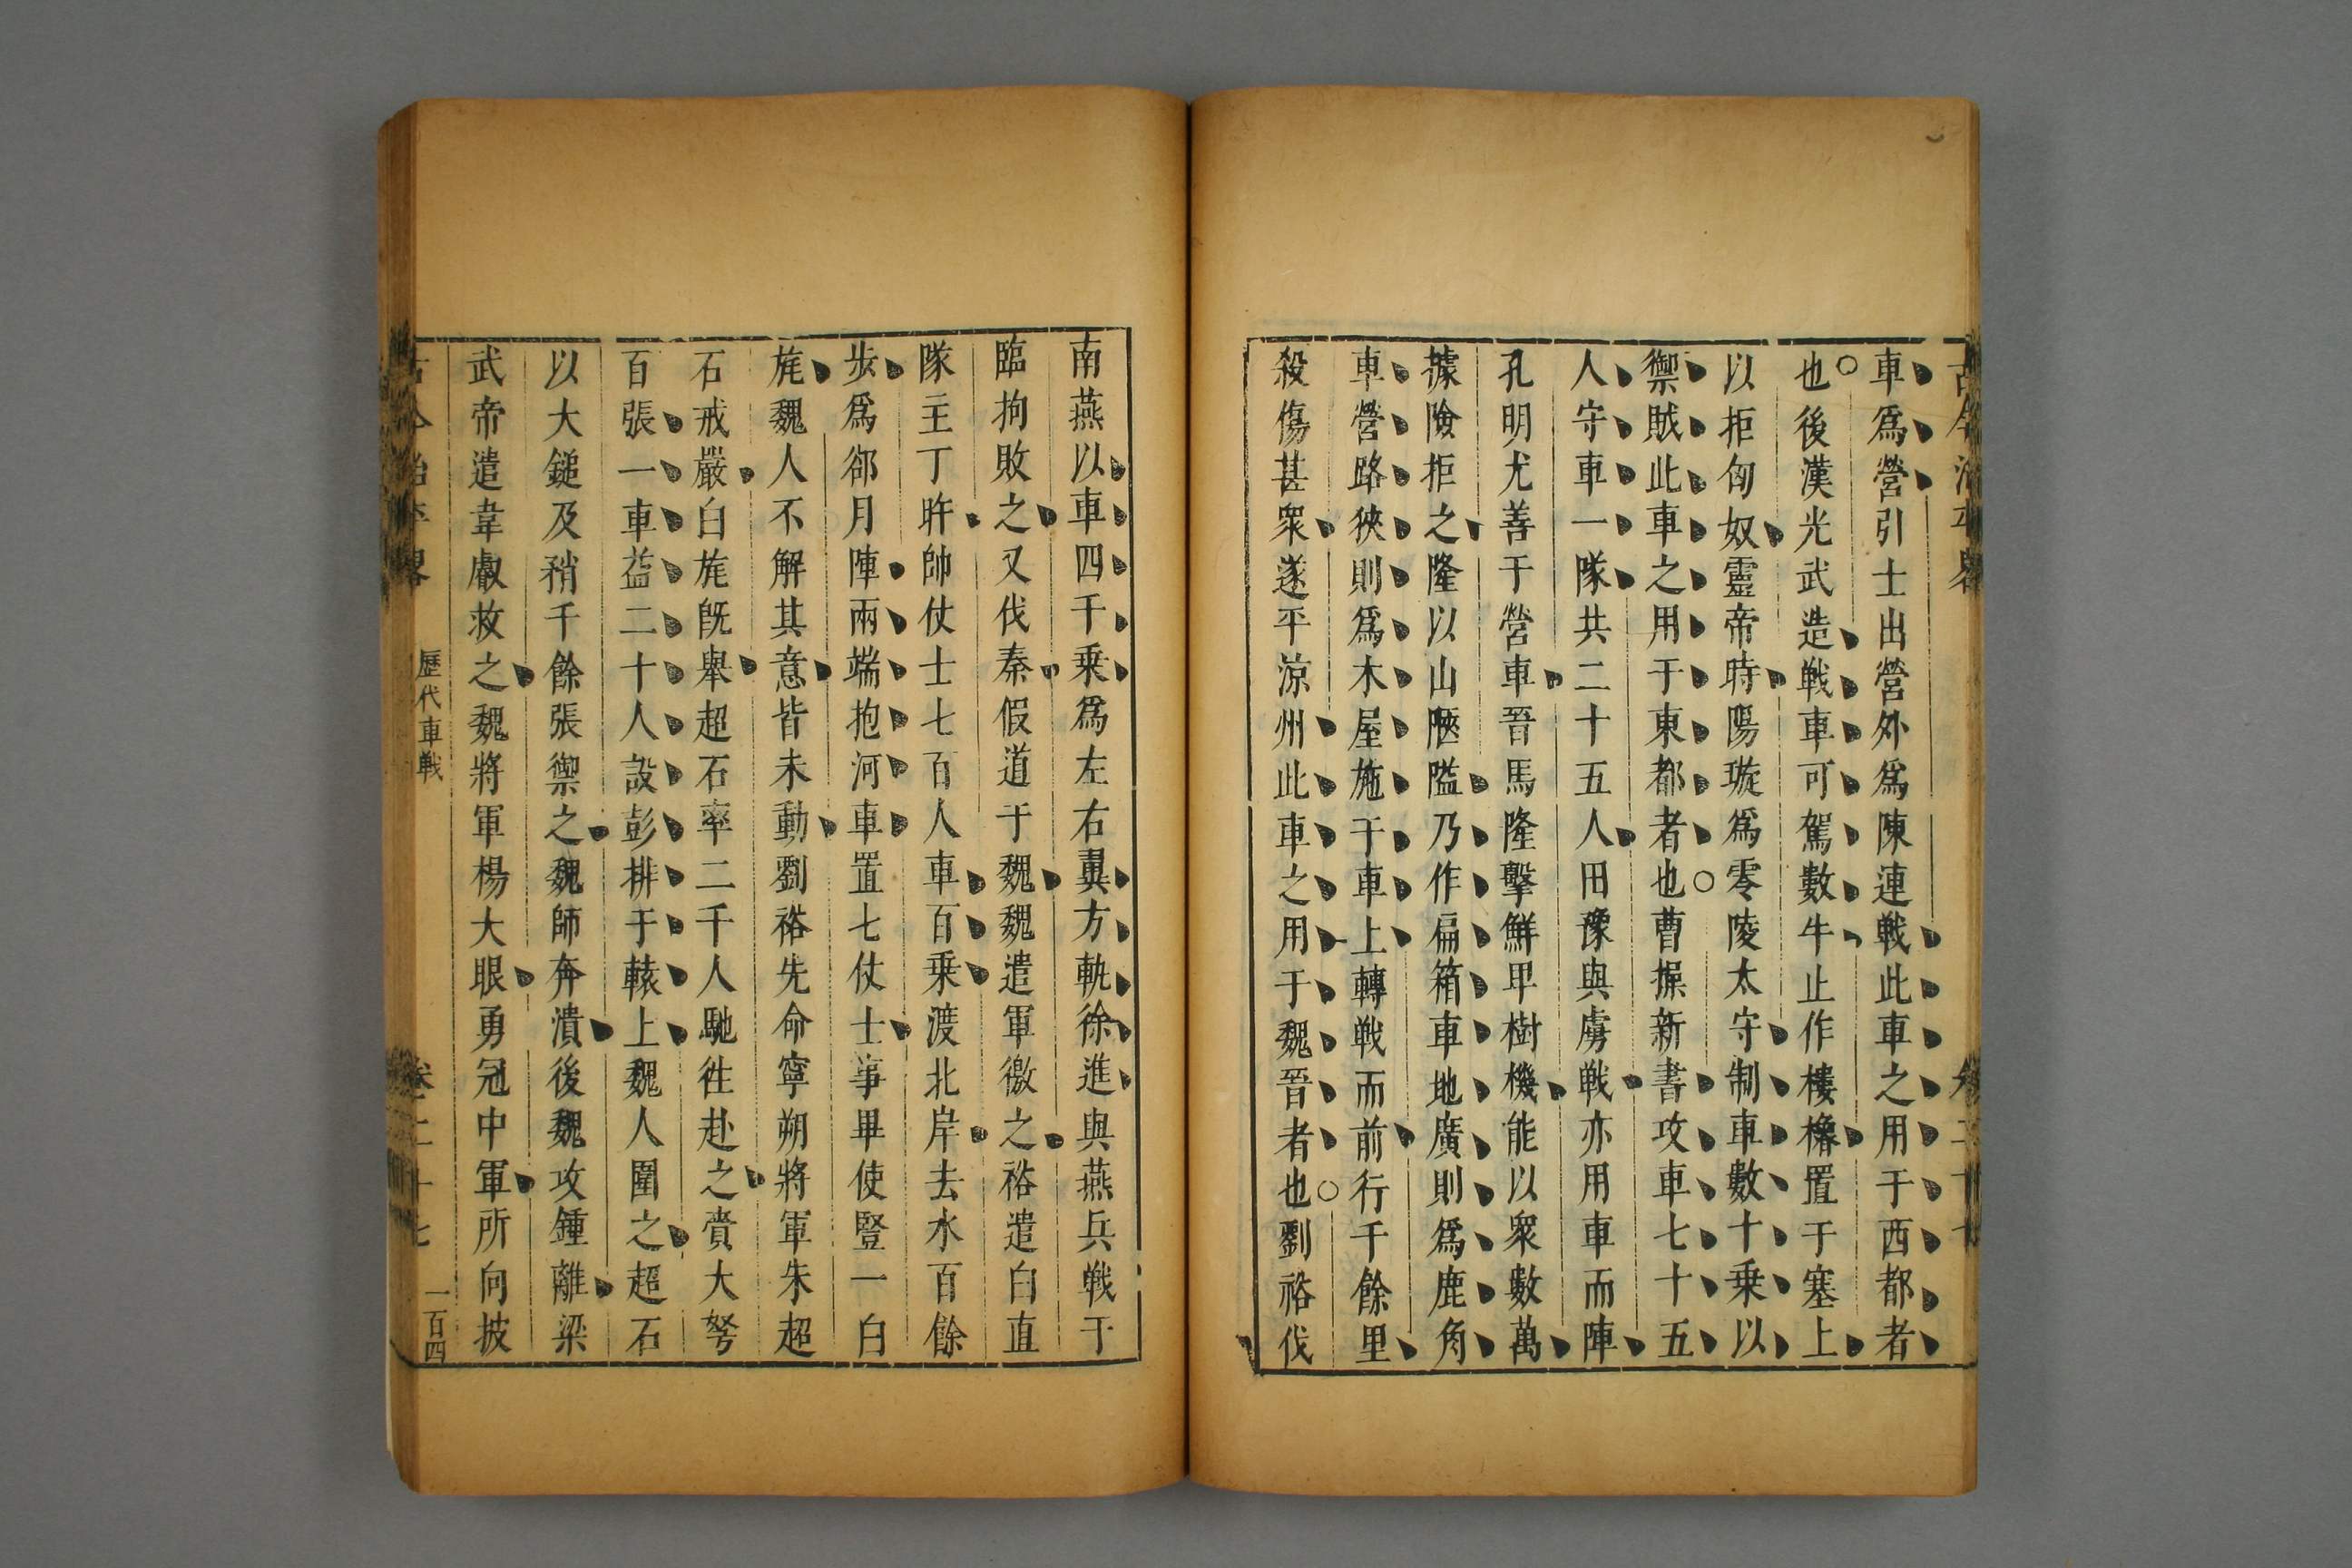 車爲營引士出營外爲陳連戰此車之用于西都者
也○後漢光武造戰車可駕數牛止作樓櫓置于塞上
以拒匈奴靈帝時陽璇爲零陵太守制車數十乘以
禦賊此車之用于東都者也○曹操新書攻車七十五
人守車一隊共二十五人田豫與虜戰亦用車而陣
孔明尤善于營車晉馬隆擊鮮卑樹機能以衆數萬
據險拒之隆以山陿隘乃作扁箱車地廣則爲鹿角
車營路狹則爲木屋施于車上轉戰而前行千餘里
殺傷甚衆遂平涼州此車之用于魏晉者也○劉裕伐
南燕以車四千乘爲左右翼方軌徐進與燕兵戰于
臨朐敗之又伐秦假道于魏魏遣軍徼之裕遣白直
隊主丁旿帥仗士七百人車百乘渡北岸去水百餘
步爲郤月陣兩端抱河車置七仗士事畢使豎一白
旄魏人不解其意皆未動劉裕先命寧朔將軍朱超
石戒嚴白旄既舉超石率二千人馳往赴之賷大弩
百張一車益二十人設彭排于轅上魏人圍之超石
以大鎚及矟千餘張禦之魏師奔潰後魏攻鍾離梁
武帝遣韋叡救之魏將軍楊大眼勇冠中軍所向披
歷代車戰
卷二十七
一百四